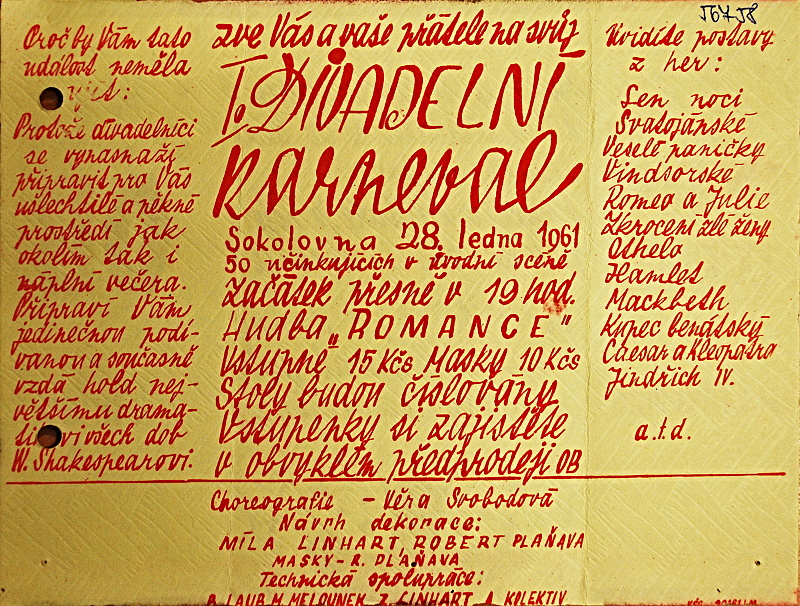 56758
Proč by Vám tato
událost neměla
ujít:
Protože divadelníci
se vynasnaží
připravit pro Vás
ušlechtilé a pěkné
prostředí jak
okolím tak i
náplní večera.
Připraví Vám
jedinečnou podí-
vanou a současně
vzdá hold nej-
většímu drama-
vi všech dob
W. Shakespearovi.
zve Vás a vaše přátele na svůj
I. DIVADELNÍ
karneval
Sokolovna 28. ledna 1961
50 účinkujících v úvodní scéně
Začátek přesně v 19 hod.
Hudba „ROMANCE"
Vstupné 15 Kčs Masky 10 Kčs
Stoly budou číslovány
Vstupenky si zajistěte
v obvyklém předprodeji OB
Uvidíte postavy
z her:
Sen noci
Svatojánské
Veselé paničky
Vindsorské
Romeo a Julie
Zkrocení zlé ženy
Othelo
Hamlet
Mackbeth
Kupec benátský
Caesar a Kleopatra
Jindřich IV.
a.t.d.
Choreografie - Věra Svobodová
Návrh dekorace:
MÍLA LINHART, ROBERT PLAŇAVA
MASKY - R. PLAŇAVA
Technická spolupráce:
B. LAUB, M. MELOUNEK, Z. LINHART A KOLEKTIV